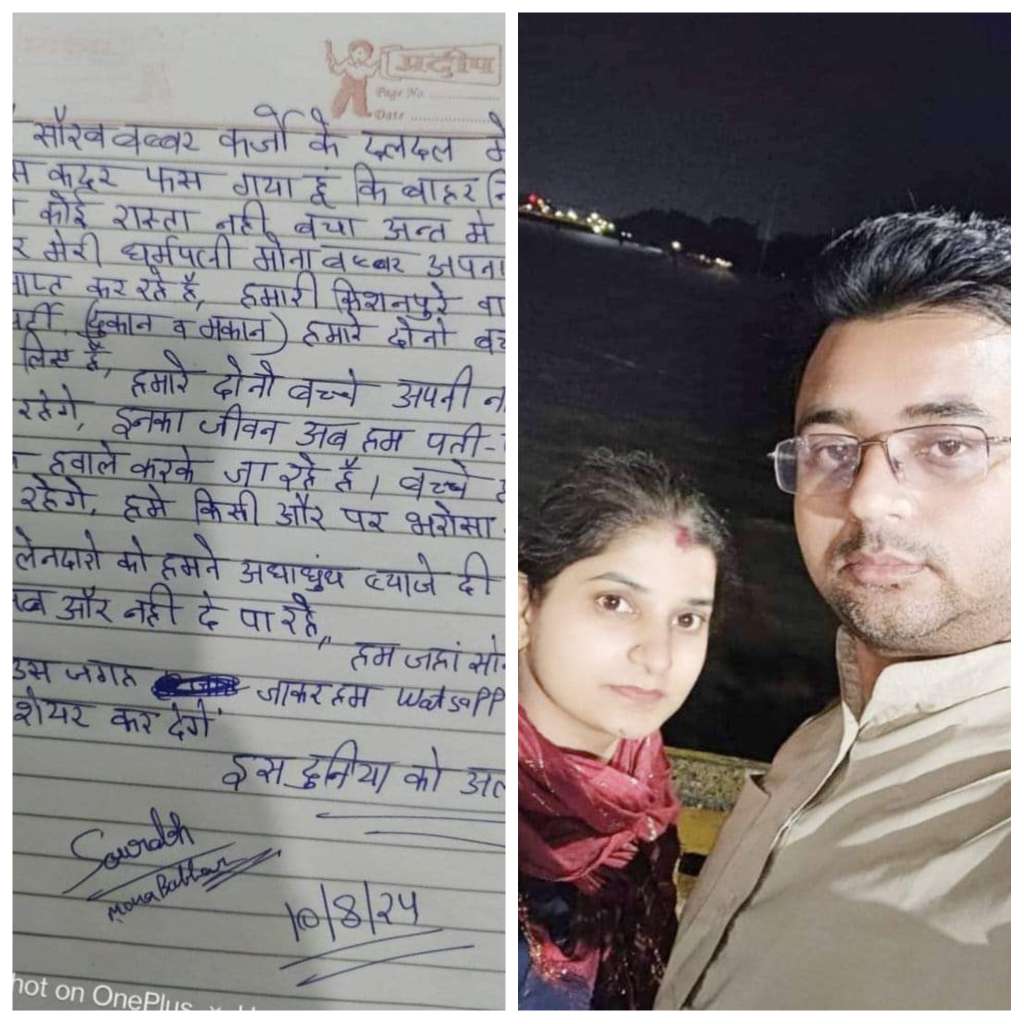 प्रदीप
Page No.
Date
सौरव बब्बर कर्जो के दलदल मे
स कदर फस गया हूं कि बाहर नि
कोई रास्ता नही बचा अन्त मे
र मेरी धर्मपत्नी मोना बब्बर अपना
माप्त कर रहे है, हमारी किशनपुरे वा
(दुकान व मकान) हमारे दोनो बच
लिए है,
हमारे दोनो बच्चे अपनी न
रहेगे, इनका जीवन अब हम पती-
हवाले करके जा रहे है। बच्चे
रहेगे, हमे किसी और पर भरोसा
लेनदारो को हमने अधाधुंध ब्याजे दी
अब और नही दे पा रहे,
हम जहां सो
उस जगह जाकर हम WatsaPP
शेयर कर देगे
इस दुनिया को अल
Sourabh
Mona Babbar
10/8/24
hot on OnePlus